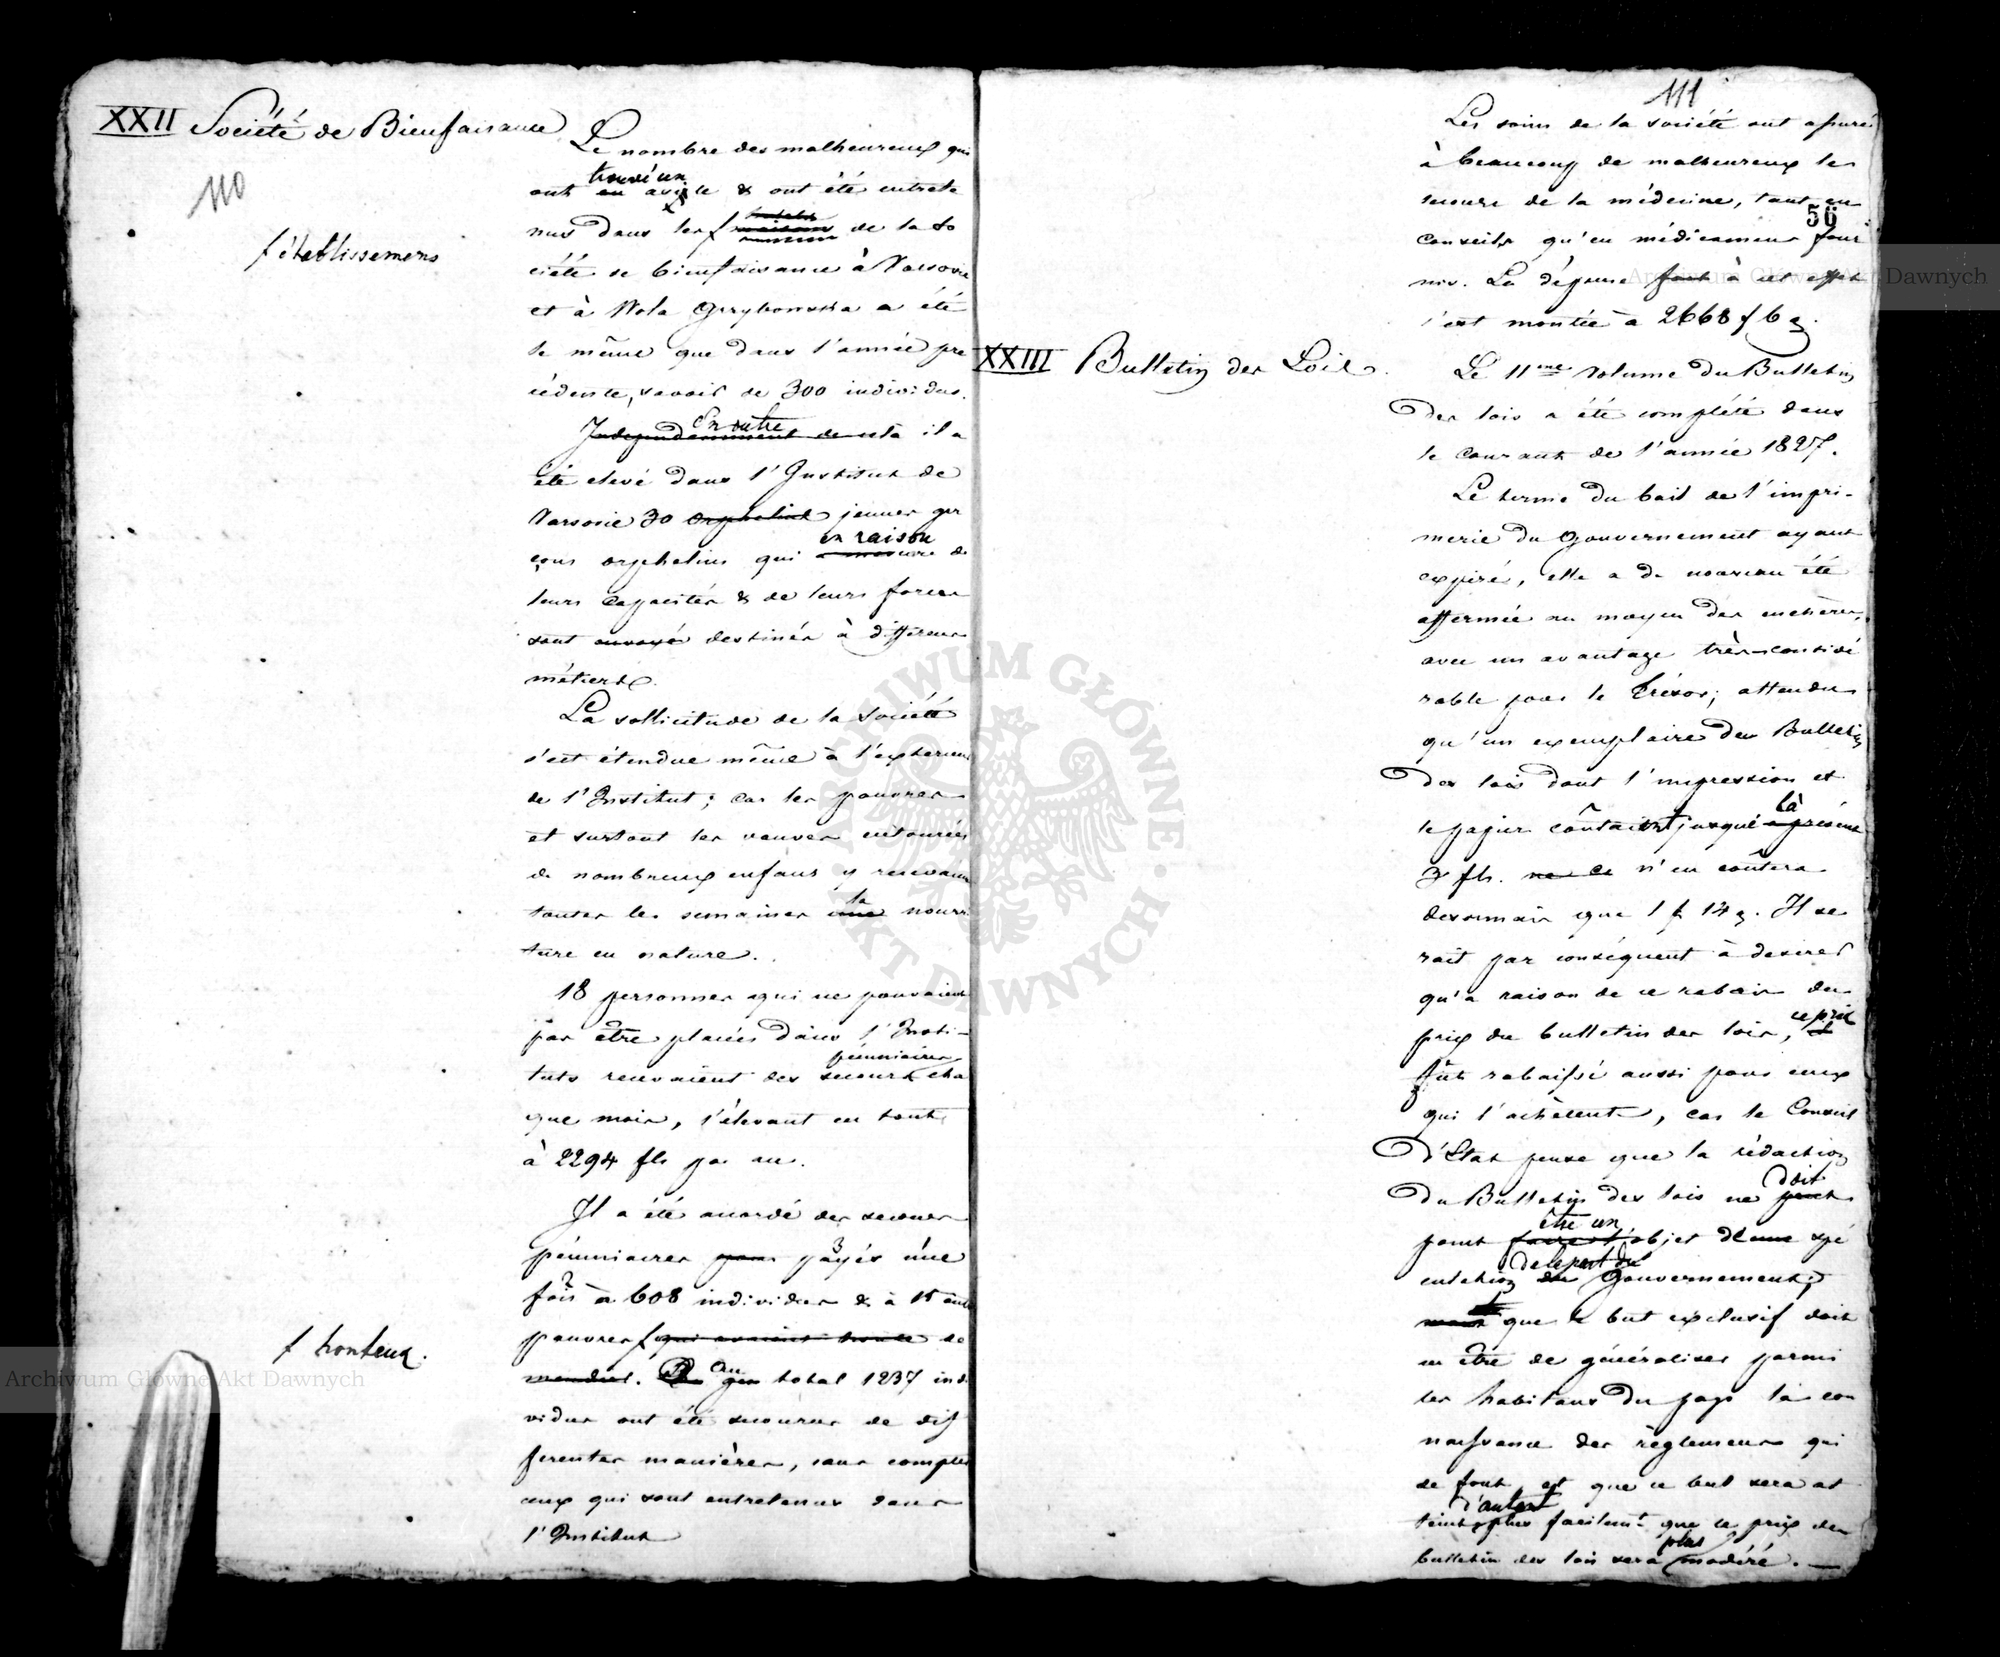 XXII Société de Bienfaisance
110
Le nombre des malheureux qui
trouvé un
ont en asyle & ont été entrete
nus dans les f maisons de la So
f établissemens
ciété de bienfaisance à Varsovie
et à Wola Grzybowska a été
le même que dans l'année pré
cédente, savoir de 300 individus.
En outre
Independamment de cela il a
été elevé dans l'Institut de
Varsovie 30 orphelins jeunes gar
en raison
çons orphelins qui a mesure de
leurs capacités & de leurs forces
sont envoyé destinés à differens
métiers.
La sollicitude de la Société
s'est étendue même à l'exterieur
de l'Institut; car les pauvres
et surtout les veuves entourées
de nombreux enfans y recevaient
la
toutes les semaines une nourri
ture en nature.
18 personnes qui ne pouvaient
pas être placés dans l'Insti-
pécuniaires
tuts recevaient des secours cha
que mois, s'élevant en tout
à 2294 fls par an.
Il a été accordé des secours
pécuniaires pour payés une
fois à 608 individus & à 15 autres
pauvres f qui avaient honte de
f honteux.
mendier. Au total 1237 indi
vidus ont été secourus de dif
ferentes manières, sans compter
ceux qui sont entretenus dans
l'Institut
111
Les soins de la société ont assuré
à beaucoup de malheureux les
secours de la médecine, tant en
56
conseils qu'en médicamens four
nis. La dépense fait à cet effet
s'est montée à 2668 f 6 g.
XXIII Bulletin des Lois.
Le 11me volume du Bulletin
des lois a été complété dans
le courant de l'année 1827.
Le terme du bail de l'impri-
merie du Gouvernement ayant
expiré, elle a de nouveau été
affermée au moyen des enchères,
avec un avantage très-considé
rable pour le Trésor; attendu
qu'un exemplaire du Bulletin
des lois dont l'impression et
là
le papier coûtaient jusqu'à présent
3 fls. ne ce n'en coûtera
desormais que 1 f 14 g. Il se
rait par conséquent à desirer
qu'a raison de ce rabais du
ce prix
prix du bulletin des lois, il
fût rabaissé aussi pour ceux
qui l'achètent, car le Conseil
d'Etat pense que la rédaction
doit
du Bulletin des lois ne peut
être un
point faire l'objet d'une spé
de la part du
culation du Gouvernement;
mais que le but exclusif doit
en être de généraliser parmi
les habitans du pays la con
naissance des règlemens qui
se font, et que ce but sera at
d'autant
teint plus facilemt que le prix du
plus
bulletin des lois sera modéré. —
Archiwum Główne Akt Dawnych
Archiwum Główne Akt Dawnych
ARCHIWUM GŁÓWNE · AKT DAWNYCH ·